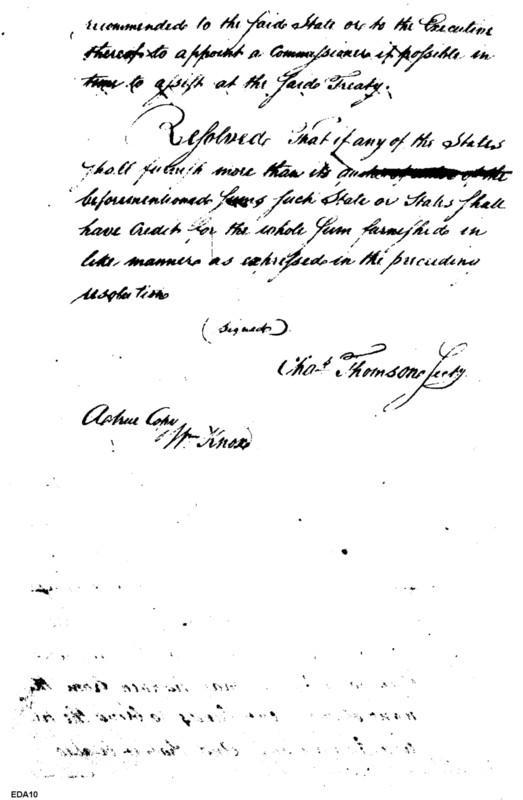 recommended to the said State or to the Executive
thereof to appoint a Commissioner if possible in
time to assist at the said Treaty.
Resolved That if any of the States
shall furnish more than its
beforementioned sums such State or States shall
have Credit for the whole sum furnished in
like manner as expressed in the preceeding
resolution
(signed)
Chas. Thomson Secty.
A true Copy
Wm Knox
EDA10